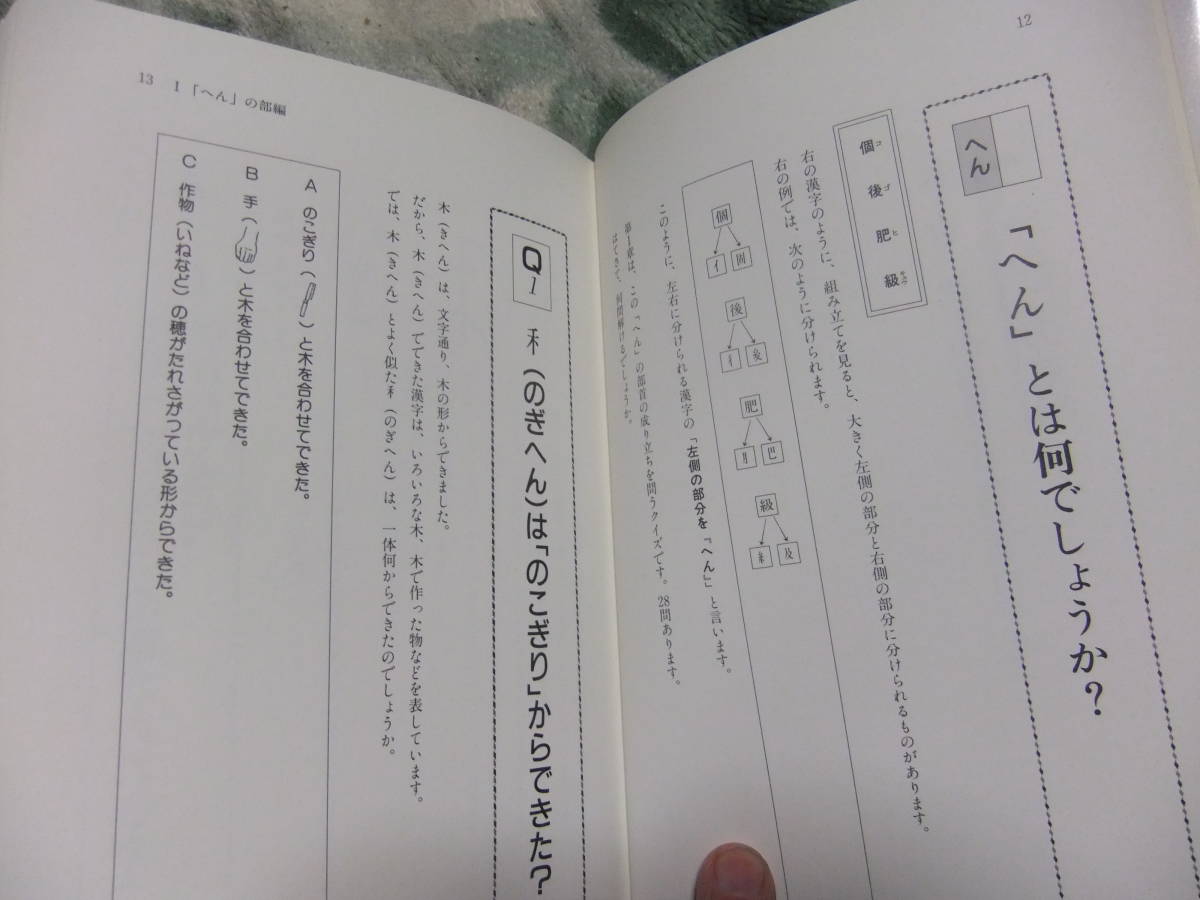 12
へん
「へん」とは何でしょうか？
個コ 後ゴ 肥ヒ 級キュウ
右の漢字のように、組み立てを見ると、大きく左側の部分と右側の部分に分けられるものがあります。
右の例では、次のように分けられます。
個
亻 固
後
彳
肥
月 巴
級
糸 及
このように、左右に分けられる漢字の「左側の部分を「へん」」と言います。
第1章は、この「へん」の部首の成り立ちを問うクイズです。28問あります。
はてさて、何問解けるでしょうか。
13 1「へん」の部編
Q1 禾（のぎへん）は「のこぎり」からできた？
木（きへん）は、文字通り、木の形からできました。
だから、木（きへん）でできた漢字は、いろいろな木、木で作った物などを表しています。
では、木（きへん）とよく似た禾（のぎへん）は、一体何からできたのでしょうか。
A のこぎり（ ）と木を合わせてできた。
B 手（ ）と木を合わせてできた。
C 作物（いねなど）の穂がたれさがっている形からできた。